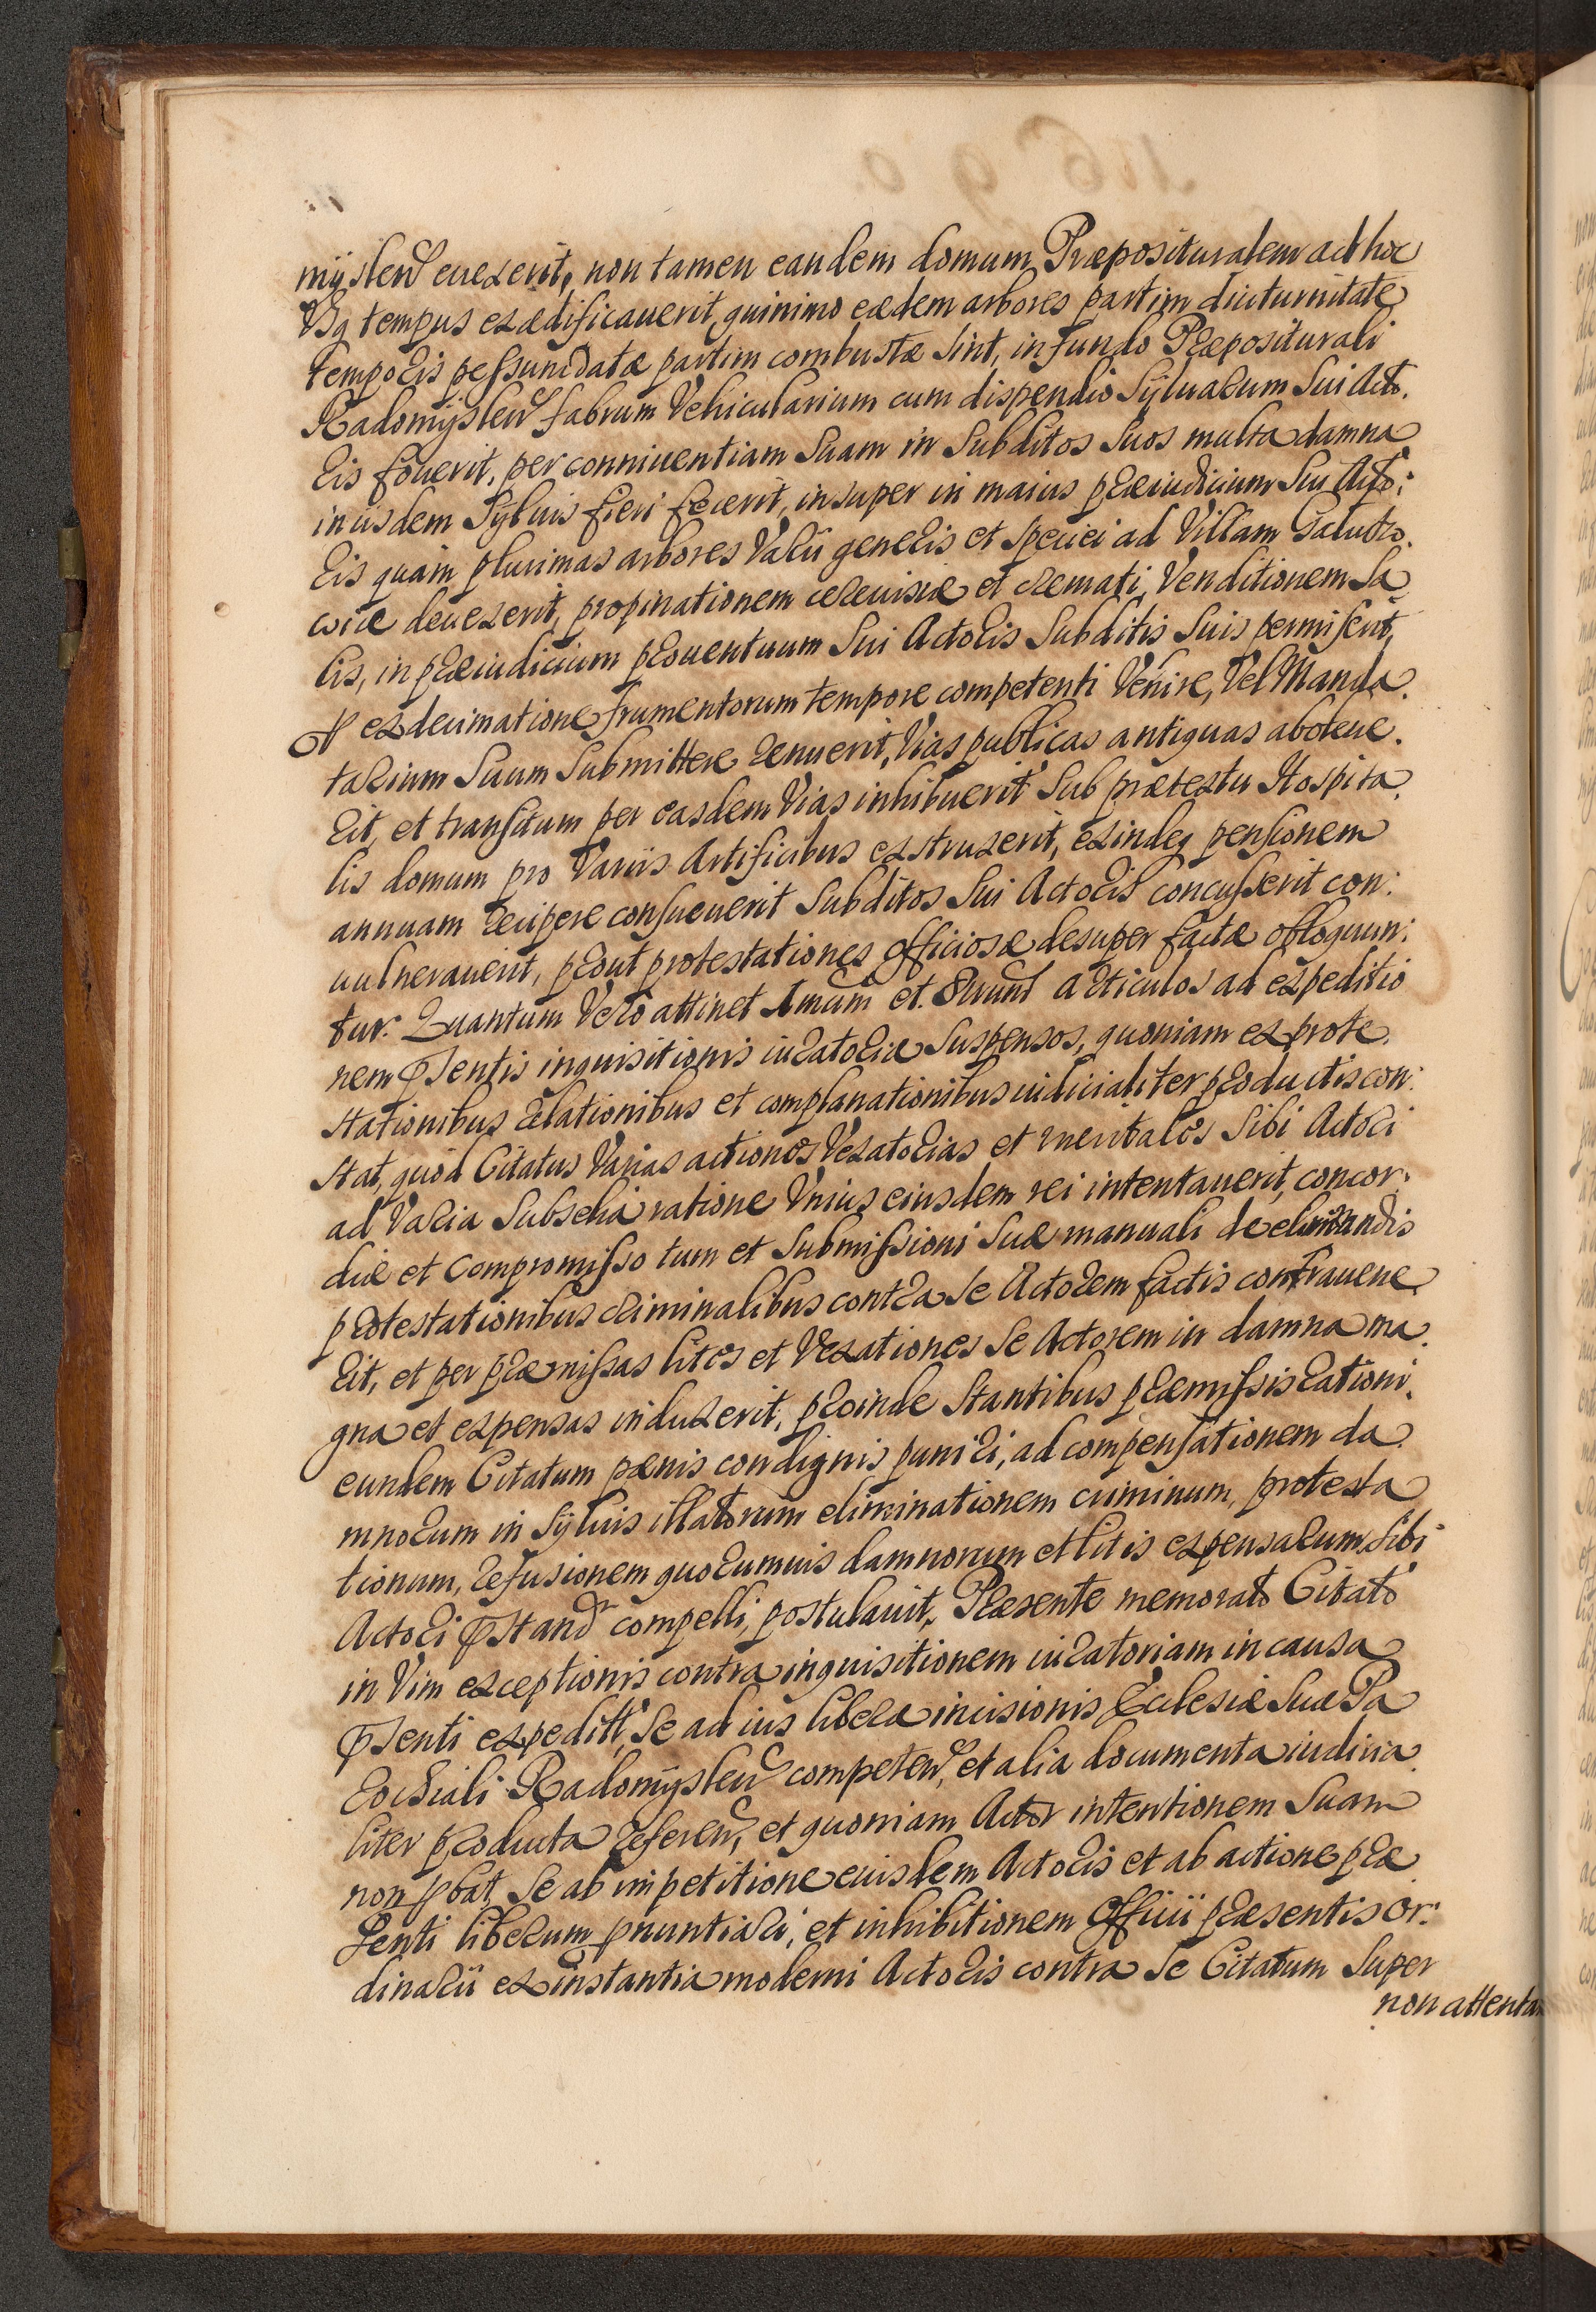 mÿslen̄ euexerit, non tamen eandem domum Præposituralem ad hoc
Vsq tempus exædificauerit, quinimo eædem arbores partim diuturnitate
temporis pessundatæ partim combustæ sint, in fundo Præpositurali
Radomÿslen̄ fabrum Vehicularium cum dispendio Sÿluarum Sui Acto.
ris fouerit, per conniuentiam Suam in Subditos Suos multa damna
in iisdem Sÿluis fieri fecerit, insuper in maius præiudicium Sui Acto:
ris quam plurimas arbores Varii generis et speciei ad Villam
wice deuexerit, propinationem cereuisiæ et cremati, Venditionem Sa
lis, in præiudicium prouentuum Sui Actoris Subditis Suis permiserit,
P exdecimatione frumentorum tempore competenti Venire, Vel Manda.
tarium Suum Submittere renuerit, Vias publicas antiquas aboleue.
rit, et transitum per easdem Vias inhibuerit Sub prætextu Hospita.
lis domum pro Variis Artificibus exstruxerit, exindeq pensionem
annuam recipere consueuerit Subditos Sui Actoris concusserit con:
uulnerauerit, prout protestationes officiosæ desuper factæ obloquun:
tur. Quantum Vero attinet Imum et 8uum articulos ad expeditio
nem Psentis inquisitionis iuratoriæ Suspensos, quoniam ex prote.
stationibus relationibus et complanationibus iudicialiter productis con:
stat, quod Citatus Varias actiones Vexatorias et Sibi Actori
ad Varia Subsellia ratione Vnius eiusdem rei intentauerit, concor:
diæ et Compromisso tum et Submissioni Suæ manuali de eliminandis
protestationibus criminalibus contra Se Actorem factis contrauene
rit, et per præmissas lites et Vexationes Se Actorem in damna ma
gna et expensas induxerit, proinde Stantibus præmissis rationi.
eundem Citatum pænis condignis puniri, ad compensationem da
mnorum in Sÿluis illatorum eliminationem criminum, protesta
tionum, refusionem quorumuis damnorum et litis expensarum Sibi
Actori Pstand̄ compelli, postulauit, Præsente memorato Citato
in Vim exceptionis contra inquisitionem iuratoriam in causa
Psenti expedit Se ad ius liberæ incisionis Ecclesiæ Suæ Pa
rochiali Radomÿslen̄ competen̄, et alia documenta iudicia.
liter producta referen̄, et quoniam Actor intentionem Suam
non pbat, Se ab impetitione eiusdem Actoris et ab actione præ
senti liberum pnuntiari, et inhibitionem Officii præsentis or:
dinarii ex instantia moderni Actoris contra Se Citatum Super
non attenta